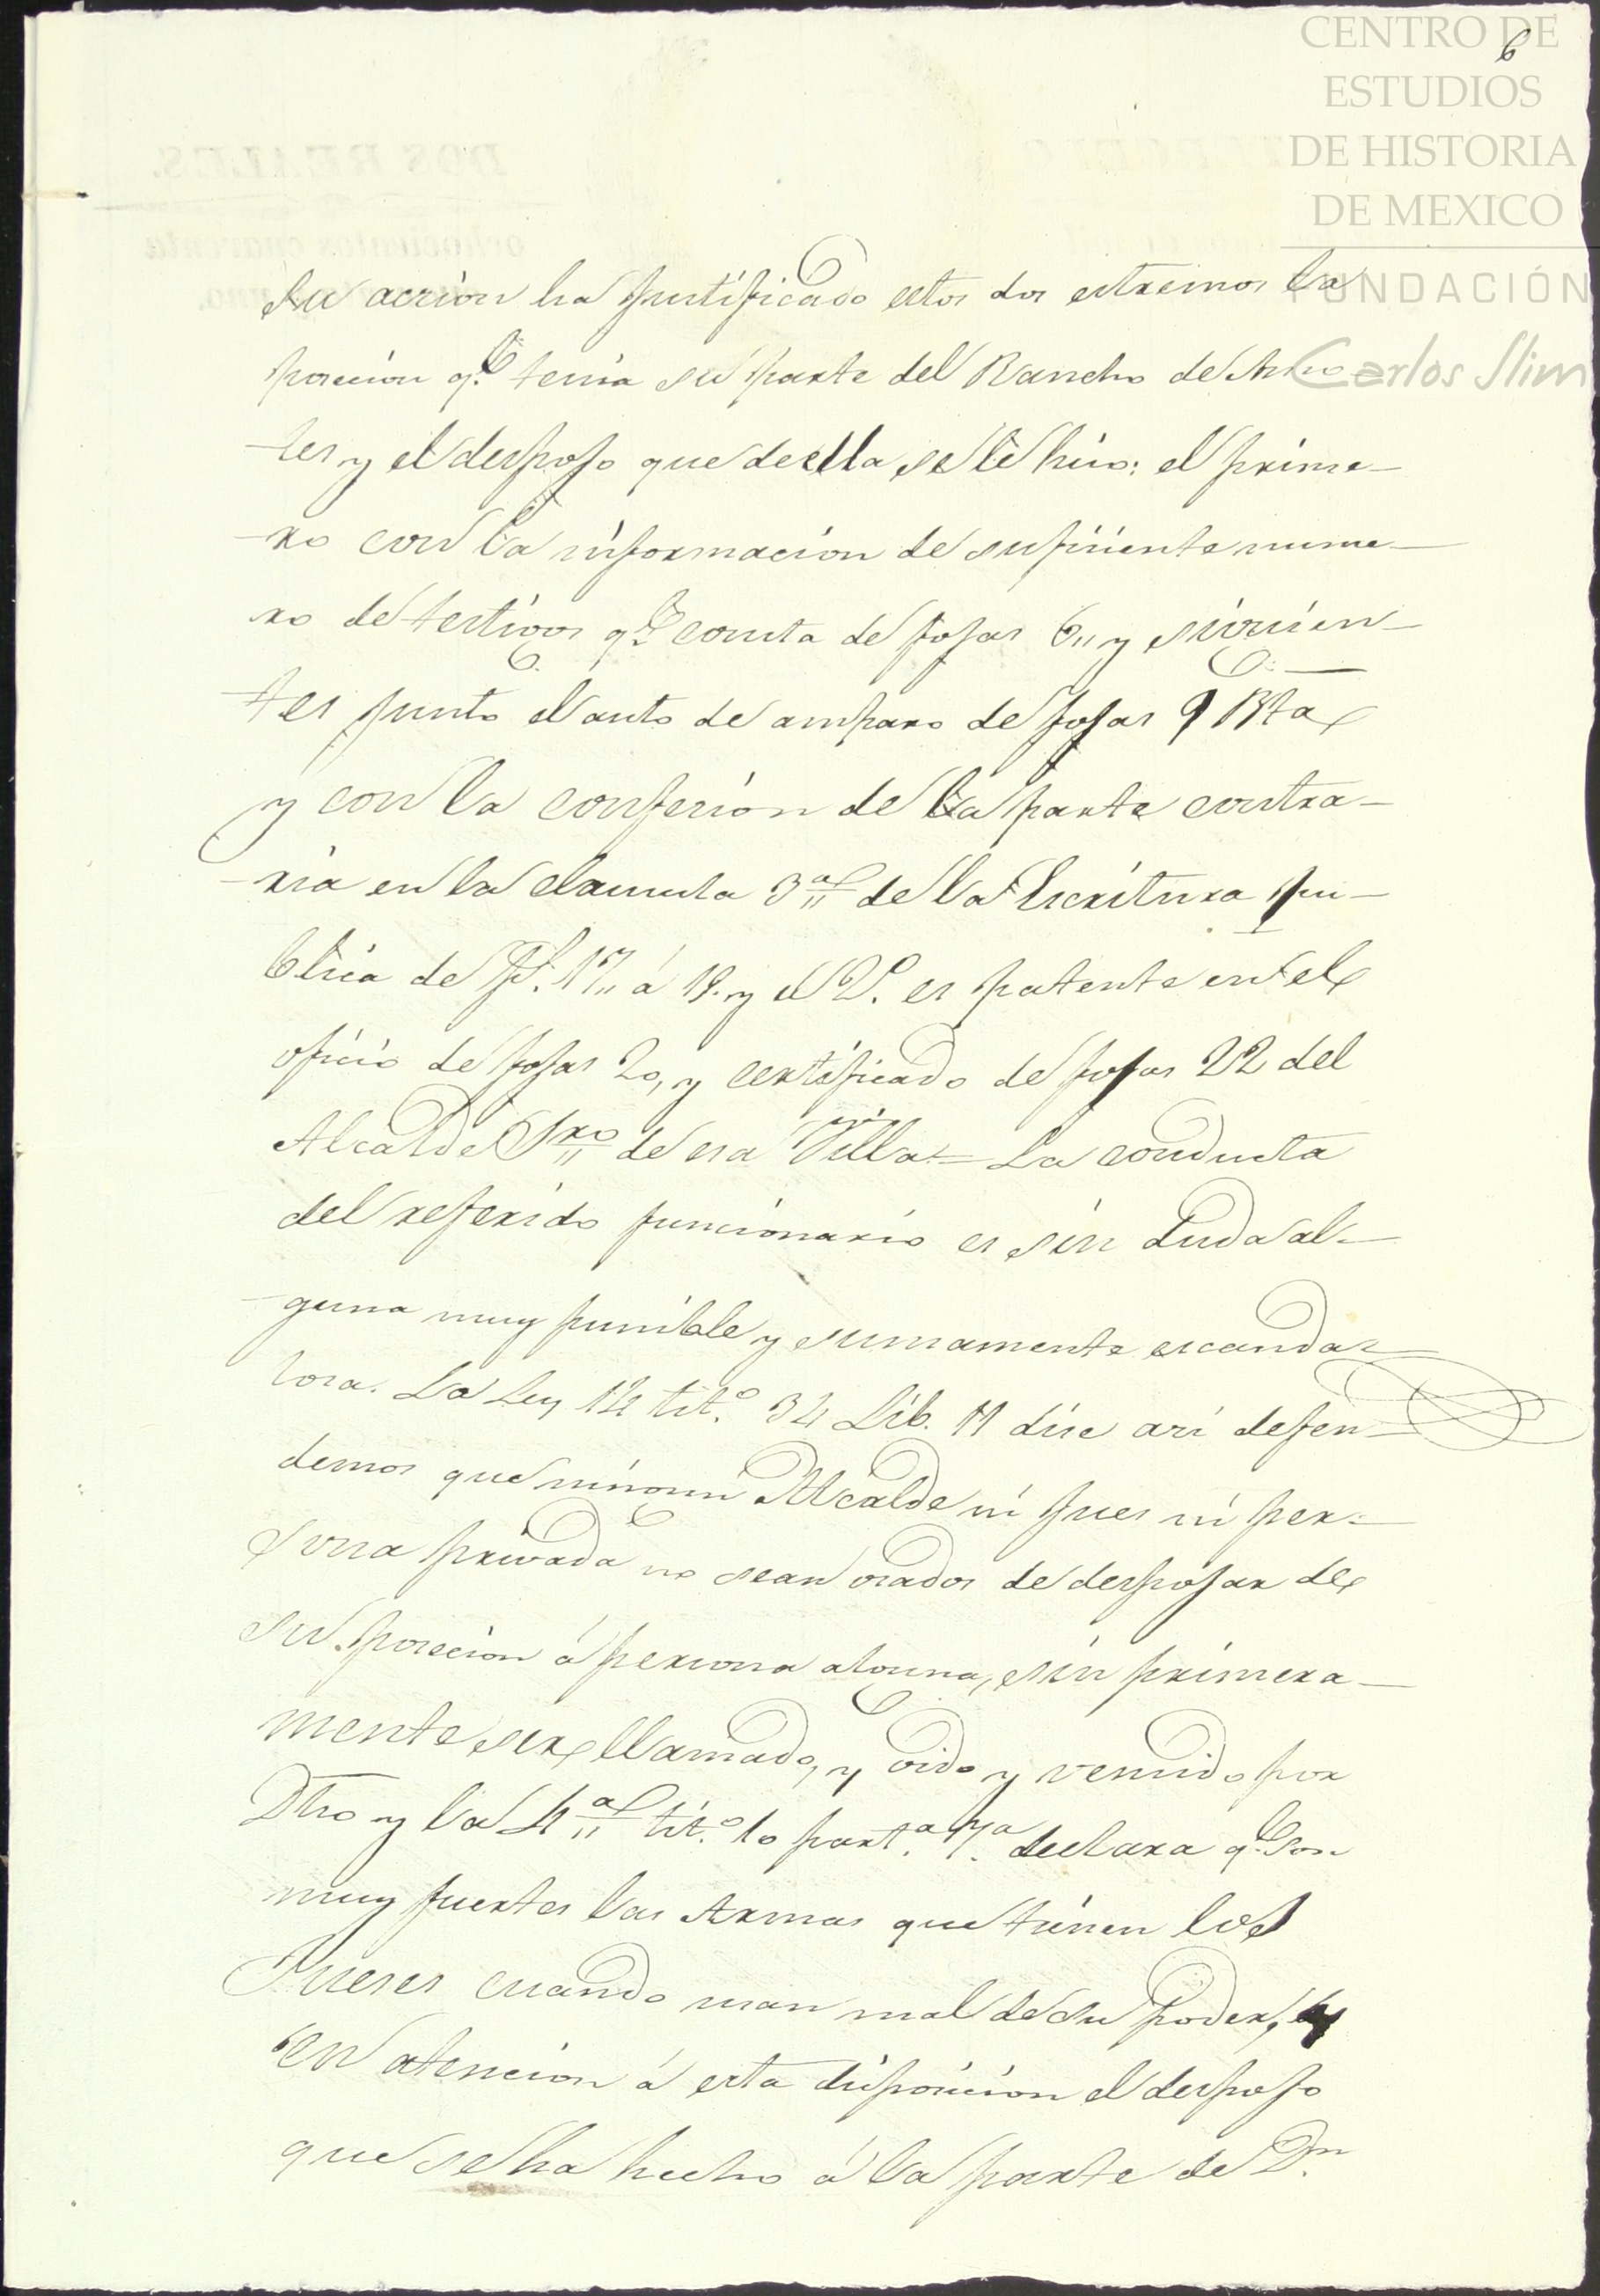 CENTRO DE
ESTUDIOS
DE HISTORIA
DE MEXICO
FUNDACIÓN
Carlos Slim
6
su accion ha justificado estos dos estremos la
posecion q.e tenia su parte del Rancho de
tes y el despojo que de ella se le hiso: el prime-
-ro con la informacion de suficiente nume-
ro de testigos q.e consta de fojas 6,, y siguien-
tes junto el auto de amparo de fojas 9 Bta
y con la confesion de la parte contra-
-ria en la clausula 3.a de la Escritura pu-
blica de f.s 17,, á 19. y el 2.o es patente en el
oficio de fojas 20, y certificado de fojas 22 del
Alcalde 1.ro de esa Villa.= La conducta
del referido funcionario es sin duda al-
-guna muy punible y sumamente escanda-
losa. La Ley 12 tit.o 34 Lib. 11 dise asi defen-
demos que ningun Alcalde ni jues ni per-
sona privada no sean osados de despojar de
su posecion á persona alguna, sin primera-
mente ser llamado, y oido y vencido por
Dro y la 4.a tit.o 10 part.a 7.a declara q.e son
muy fuertes las Armas que tienen los
Jueses cuando usan mal de su poder, y
en atencion á esta disposicion el despojo
que se ha hecho á la parte de D.n